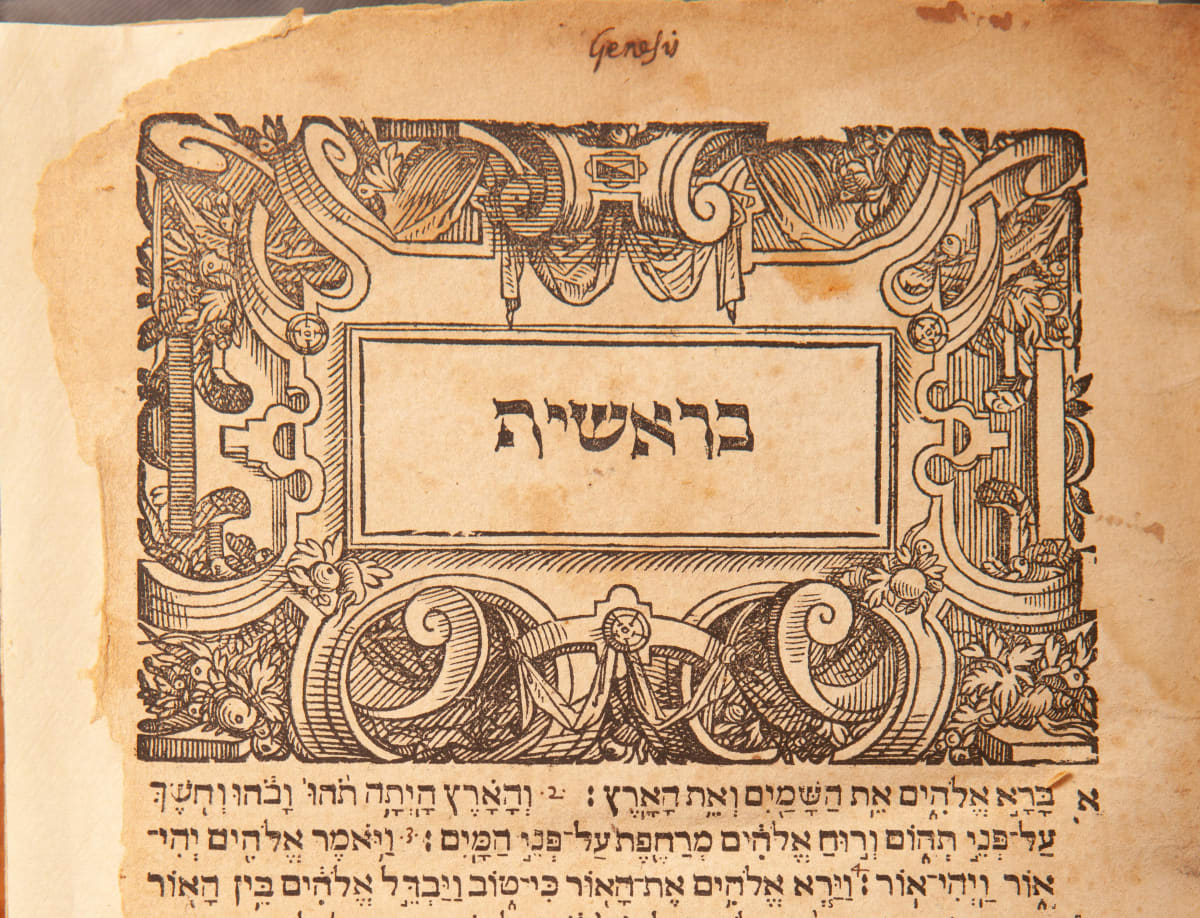 Genesis
בראשית
א בָּרָא אֱלֹהִים אֵת הַשָּׁמַיִם וְאֵת הָאָרֶץ׃ 2 וְהָאָרֶץ הָיְתָה תֹהוּ וָבֹהוּ וְחֹשֶׁךְ
עַל־פְּנֵי תְהוֹם וְרוּחַ אֱלֹהִים מְרַחֶפֶת עַל־פְּנֵי הַמָּיִם׃ 3 וַיֹּאמֶר אֱלֹהִים יְהִי־
אוֹר וַיְהִי־אוֹר׃ 4 וַיַּרְא אֱלֹהִים אֶת־הָאוֹר כִּי־טוֹב וַיַּבְדֵּל אֱלֹהִים בֵּין הָאוֹר